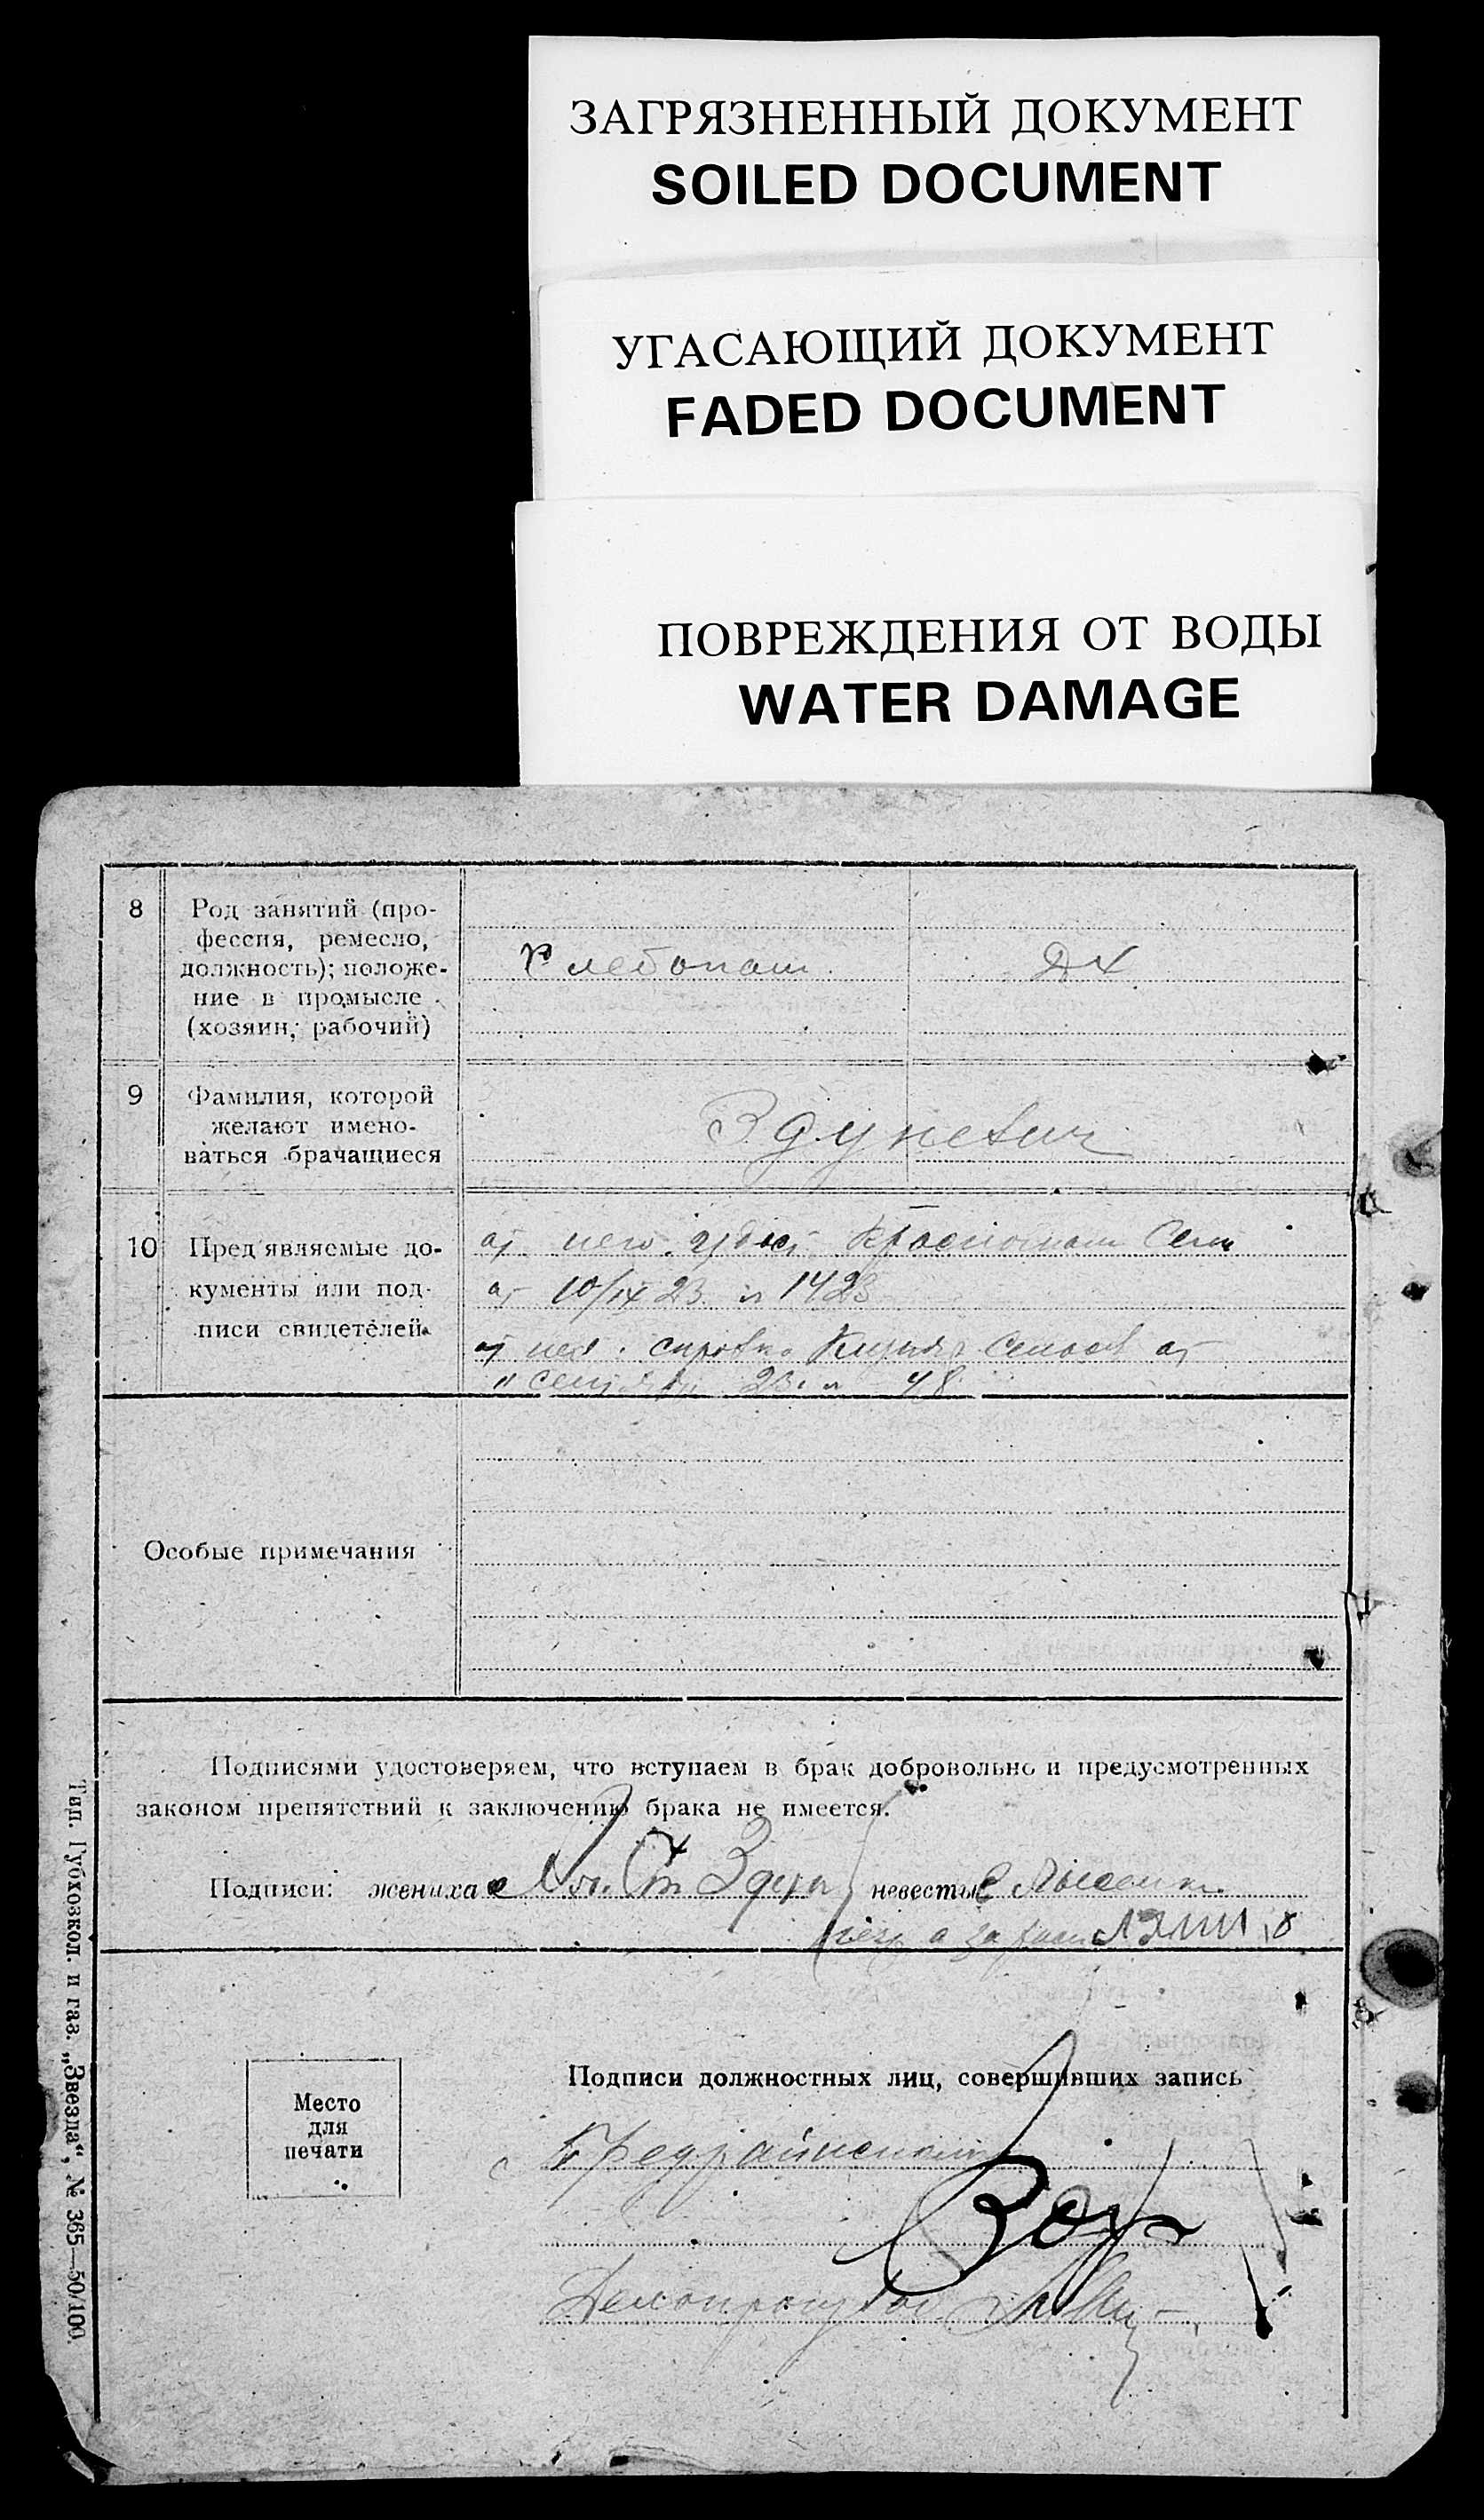 ЗАГРЯЗНЕННЫЙ ДОКУМЕНТ
SOILED DOCUMENT
УГАСАЮЩИЙ ДОКУМЕНТ
FADED DOCUMENT
ПОВРЕЖДЕНИЯ ОТ ВОДЫ
WATER DAMAGE
8
Род занятий (про-
фессия, ремесло,
должность); положе-
ние в промысле
(хозяин, рабочий)
Хлебопаш.
ДХ
9
Фамилия, которой
желают имено-
ваться брачащиеся
Здуневич
10
Пред'являемые до-
кументы или под-
писи свидетелей.
10/IX 23. 1423
23.
48
Особые примечания
Подписями удостоверяем, что вступаем в брак добровольно и предусмотренных
законом препятствий к заключению брака не имеется.
Подписи: жениха
невесты
Место
для
печати
Подписи должностных лиц, совершивших запись
Предрайисполк
Делопроизвод
Тип. Губхозкол. и газ. „Звезда“, № 365—50/100.